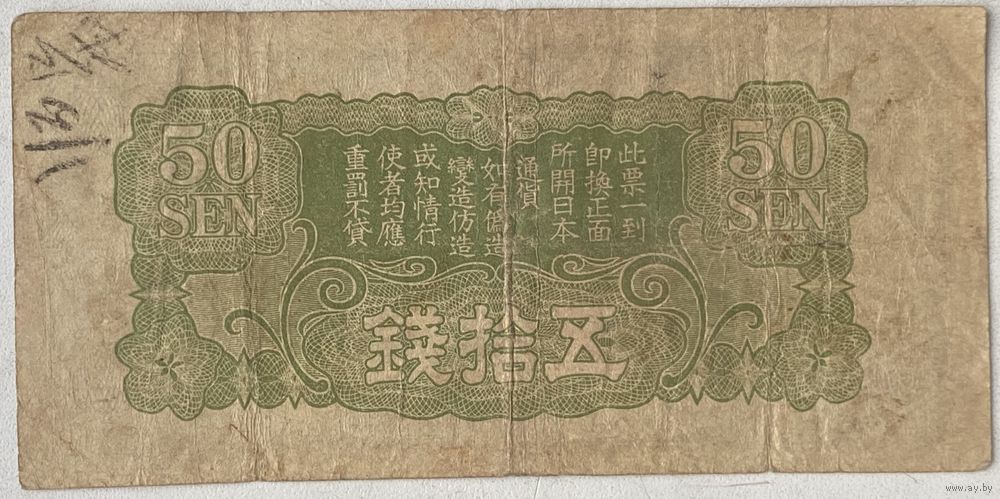 50
SEN
50
SEN
此票一到
即換正面
所開日本
通貨
如有僞造
變造仿造
或知情行
使者均應
重罰不貸
五拾錢
www.ay.by